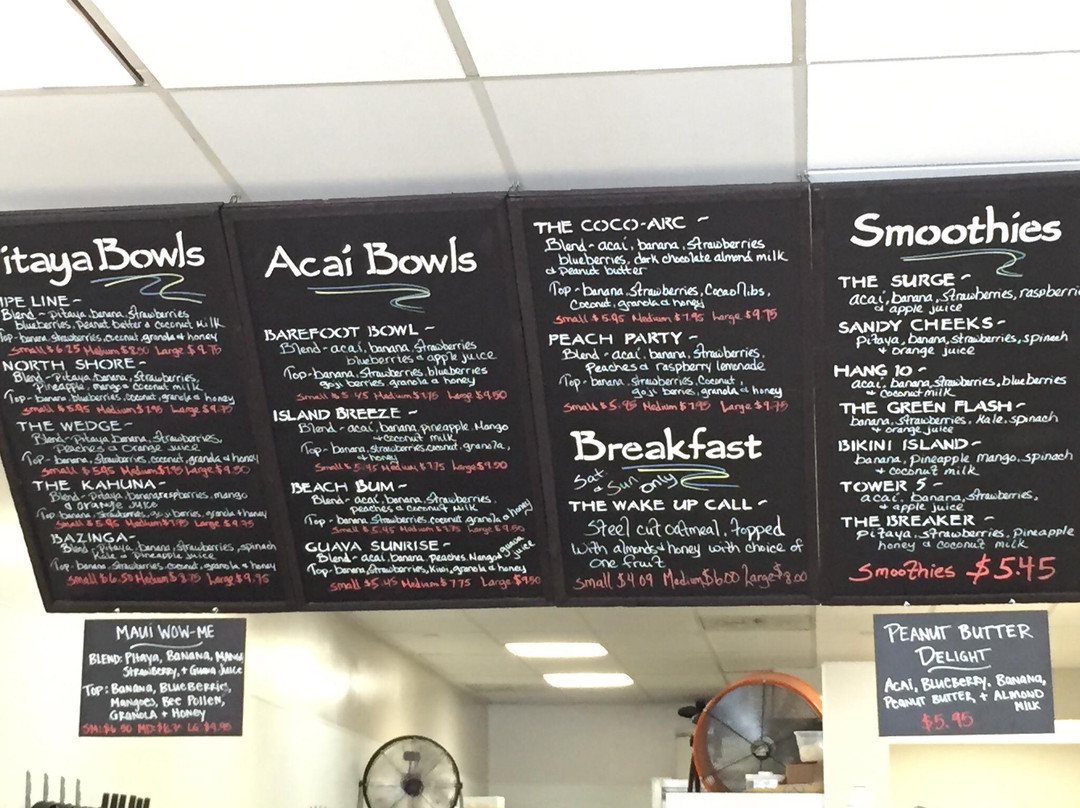 itaya Bowls
IPE LINE -
Blend - Pitaya, banana, strawberries
blueberries, peanut butter & coconut milk
Top - banana, strawberries, coconut, granola & honey
Small $6.25 Medium $8.50 Large $9.75
NORTH SHORE -
Blend - Pitaya, banana, strawberries,
Pineapple, mango & coconut milk
Top - banana, strawberries, coconut, granola & honey
Small $5.95 Medium $7.95 Large $9.75
THE WEDGE -
Blend - Pitaya, banana, strawberries,
Peaches & orange juice
Top - banana, strawberries, coconut, granola & honey
Small $5.95 Medium $7.95 Large $9.50
THE KAHUNA -
Blend - Pitaya, banana, raspberries, mango
& orange juice
Top - banana, strawberries, goji berries, granola & honey
Small $5.95 Medium $7.95 Large $9.75
BAZINGA -
Blend - Pitaya, banana, strawberries, spinach
Kale & Pineapple juice
Top - banana, strawberries, coconut, granola & honey
Small $6.50 Medium $8.75 Large $9.95
Acai Bowls
BAREFOOT BOWL -
Blend - acai, banana, strawberries
blueberries & apple juice
Top - banana, strawberries, blueberries
goji berries, granola & honey
Small $5.45 Medium $7.75 Large $9.50
ISLAND BREEZE -
Blend - acai, banana, pineapple, Mango
+ coconut milk
Top - banana, strawberries, coconut, granola,
+ honey
Small $5.45 Medium $7.75 Large $9.50
BEACH BUM -
Blend - acai, banana, strawberries,
peaches & coconut milk
Top - banana, strawberries, coconut, granola & honey
Small $5.45 Medium $7.75 Large $9.50
GUAVA SUNRISE -
Blend - acai, banana, Peaches, Mango & guava juice
Top - banana, strawberries, Kiwi, granola & honey
Small $5.45 Medium $7.75 Large $9.50
THE COCO-ARC -
Blend - acai, banana, strawberries
blueberries, dark chocolate almond milk
& Peanut butter
Top - banana, strawberries, Cacao Nibs,
Coconut, granola & honey
Small $5.95 Medium $7.95 Large $9.75
PEACH PARTY -
Blend - acai, banana, strawberries,
Peaches & raspberry lemonade
Top - banana, strawberries, Coconut,
goji berries, granola & honey
Small $5.95 Medium $7.95 Large $9.75
Breakfast
Sat & Sun only
THE WAKE UP CALL -
Steel cut oatmeal, topped
With almonds & honey with choice of
One fruit
Small $4.09 Medium $6.00 Large $8.00
Smoothies
THE SURGE -
acai, banana, strawberries, raspberrie
& apple juice
SANDY CHEEKS -
Pitaya, banana, strawberries, spinach
+ orange juice
HANG 10 -
acai, banana, strawberries, blueberries
& coconut milk
THE GREEN FLASH -
banana, strawberries, Kale, spinach
+ orange juice
BIKINI ISLAND -
banana, Pineapple mango, spinach
+ coconut milk
TOWER 5 -
acai, banana, strawberries,
& apple juice
THE BREAKER -
Pitaya, strawberries, Pineapple
honey & coconut milk
Smoothies $5.45
MAUI WOW-ME
BLEND: PITAYA, BANANA, MANGO
STRAWBERRY, + GUAVA JUICE
TOP: BANANA, BLUEBERRIE,
MANGOES, BEE POLLEN,
GRANOLA + HONEY
SM: $6.50 MD: LG: $9.95
PEANUT BUTTER
DELIGHT
ACAI, BLUEBERRY, BANANA,
PEANUT BUTTER, + ALMOND
MILK
$5.95